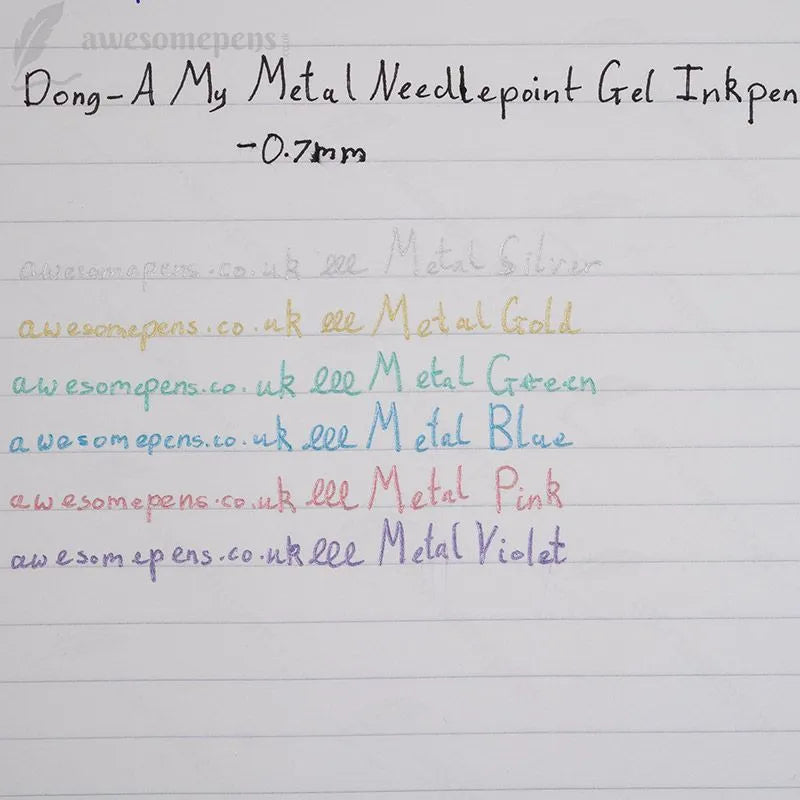 awesomepens
.co.uk
Dong-A My Metal Needlepoint Gel Inkpen
-0.7mm
awesomepens.co.uk eee Metal Silver
awesomepens.co.uk eee Metal Gold
awesomepens.co.uk eee Metal Green
awesomepens.co.uk eee Metal Blue
awesomepens.co.uk eee Metal Pink
awesomepens.co.uk eee Metal Violet